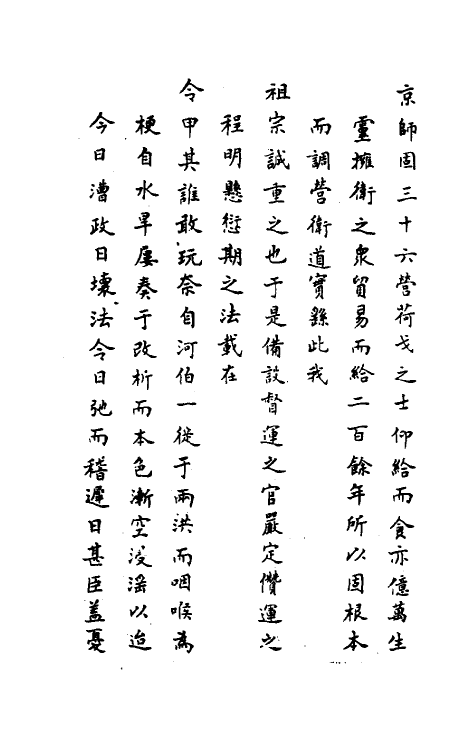 京師固三十六營荷戈之士仰給而食亦億萬生
靈擁衛之衆貿易而給二百餘年所以固根本
而調營衛道實繇此我
祖宗誠重之也于是備設督運之官嚴定儧運之
程明懸愆期之法載在
令甲其誰敢玩奈自河伯一徙于兩洪而咽喉為
梗自水旱屢奏于改折而本色漸空浸淫以迨
今日漕政日壞法令日弛而稽遲日甚臣蓋憂